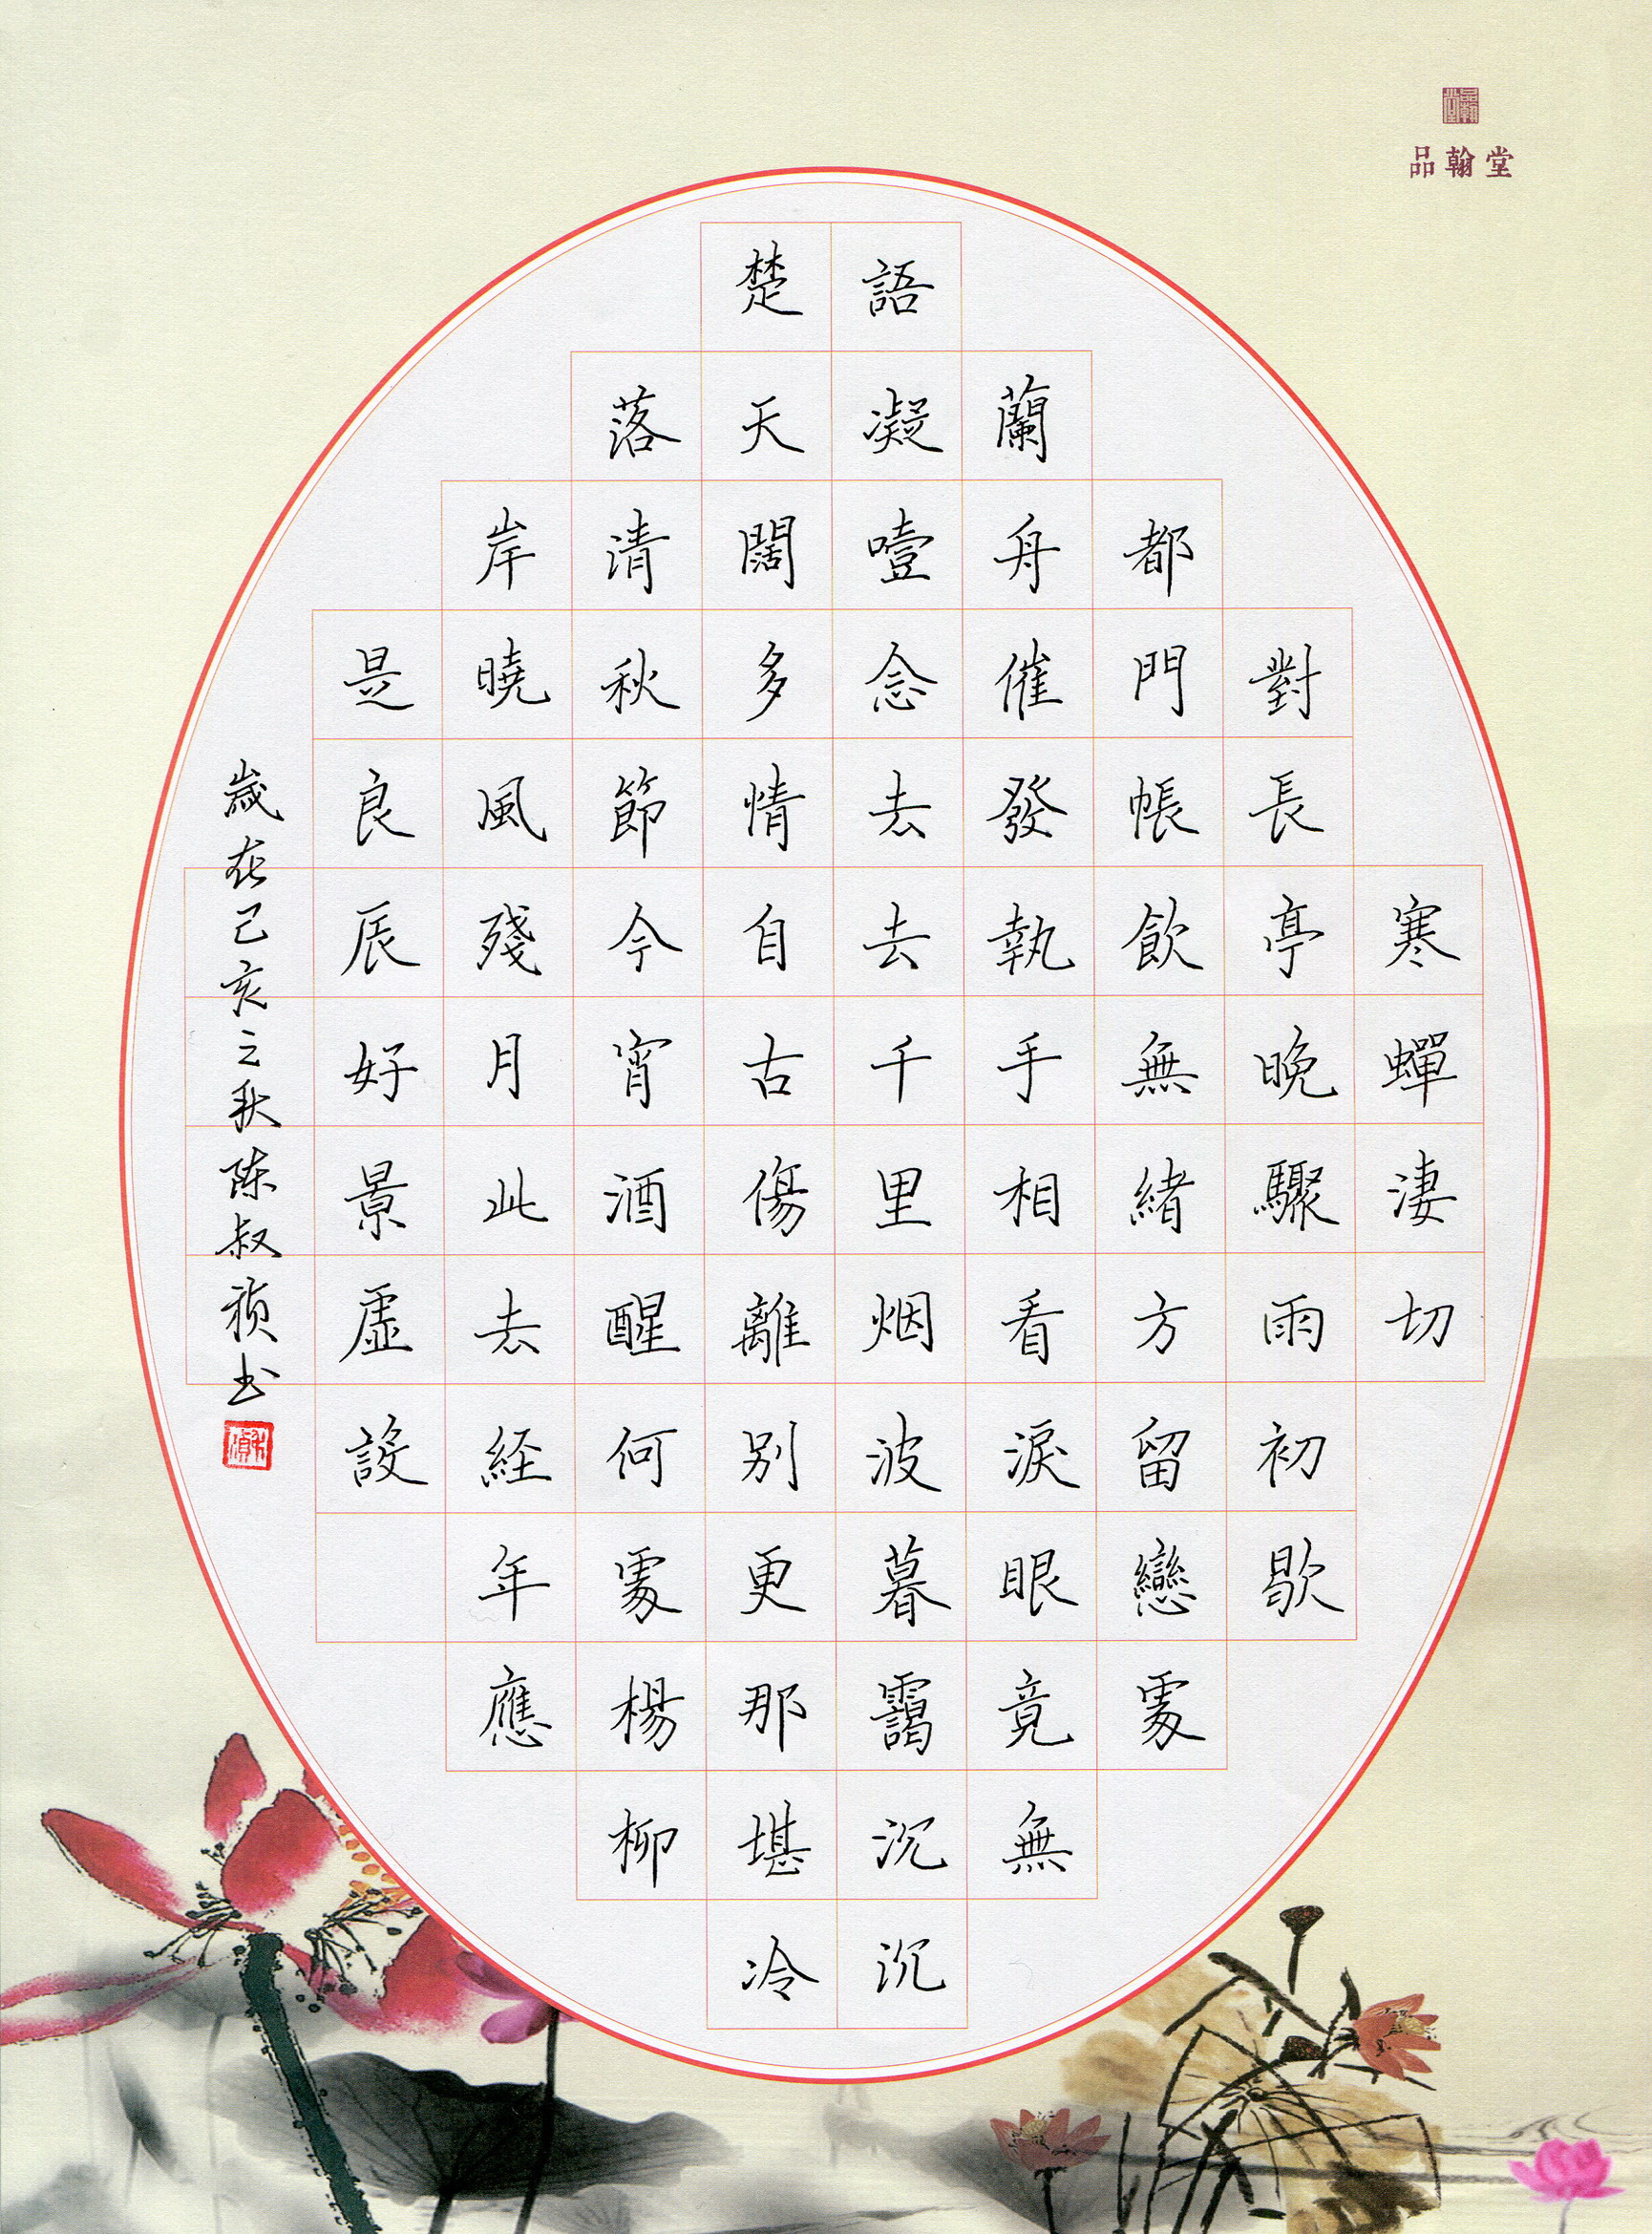 品翰堂
品翰堂
寒蟬淒切
對長亭晚驟雨初歇
都門帳飲無緒方留戀處
蘭舟催發執手相看淚眼竟無
語凝噎念去去千里烟波暮靄沉沉
楚天闊多情自古傷離别更那堪冷
落清秋節今宵酒醒何處楊柳
岸曉風殘月此去経年應
是良辰好景虛設
歲在己亥之秋陈叔祯书